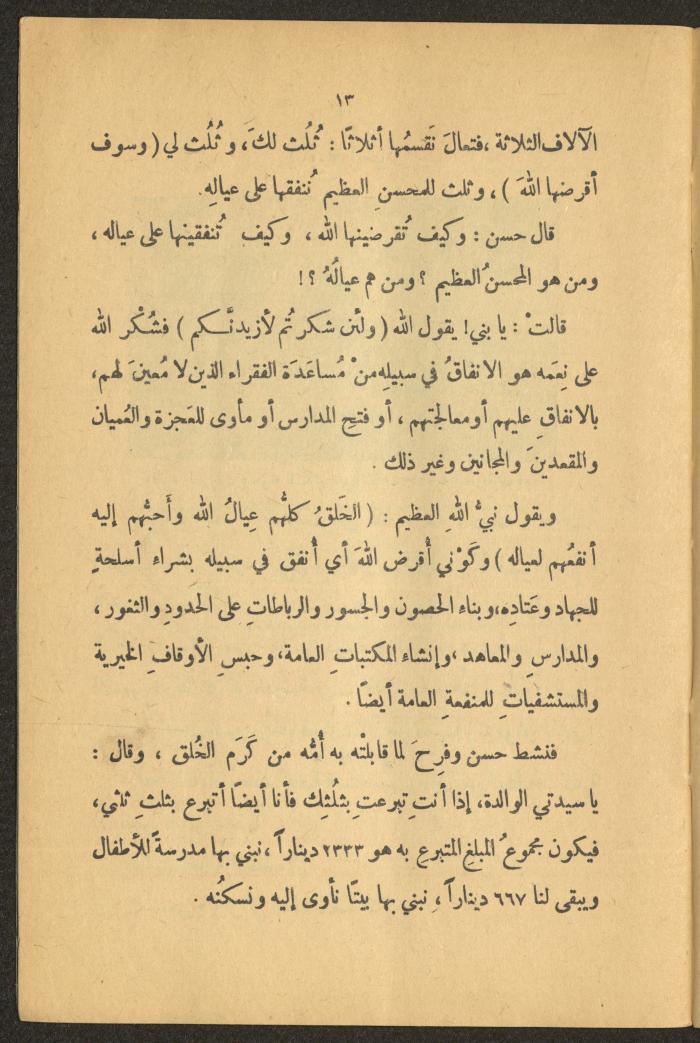 ١٣
الآلاف الثلاثة ، فتعالَ نَقسمُها أثلاثًا : ثُلُث لكَ ، و ثُلُث لي ( وسوف
أقرضها اللهَ ) ، و ثلث للمحسنِ العظيم تُنفقها على عيالهِ .
قال حسن : وكيف تُقرضينها الله ، وكيف تُنفقينها على عياله ،
ومن هو المحسنُ العظيم ؟ ومن هم عيالُهُ ؟ !
قالتْ : يا بني ! يقول الله ( ولئن شكرتُم لأزيدنَّـكم ) فشُكْر الله
على نِعَمه هو الانفاقُ في سبيلِه منْ مُساعَدَة الفقراء الذين لا مُعينَ لهم ،
بالانفاقِ عليهم أو معالجتهم ، أو فتحِ المدارس أو مأوى للعَجزة والعُميان
والمقعدينَ والمجانين وغير ذلك .
ويقول نبيُّ اللهِ العظيم : ( الخَلقُ كلهُّم عِيالُ الله وأَحبُّهم إليه
أنفعُهم لعياله ) وكَوْني أُقرض اللهَ أي أُنفق في سبيله بشراء أسلحةٍ
للجهاد وعَتادِه ، وبناء الحصون والجسور والرباطاتِ على الحدودِ والثغور ،
والمدارسِ والمعاهد ، وإنشاء المكتباتِ العامة ، وحبسِ الأوقافِ الخيرية
والمستشفياتِ للمنفعةِ العامة أيضًا .
فنشط حسن وفرِحَ لما قابلتْه به أُمُّه من كَرَم الخُلق ، وقال :
يا سيدتي الوالدة ، إذا أنتِ تبرعتِ بثلُثِك فأنا أيضًا أتبرع بثلثِ ثلثي ،
فيكون مجموعُ المبلغِ المتبرعِ به هو ٢٣٣٣ ديناراً ، نبني بها مدرسةً للأطفال
ويبقى لنا ٦٦٧ ديناراً ، نبني بها بيتًا نأوى إليه ونسكنُه .